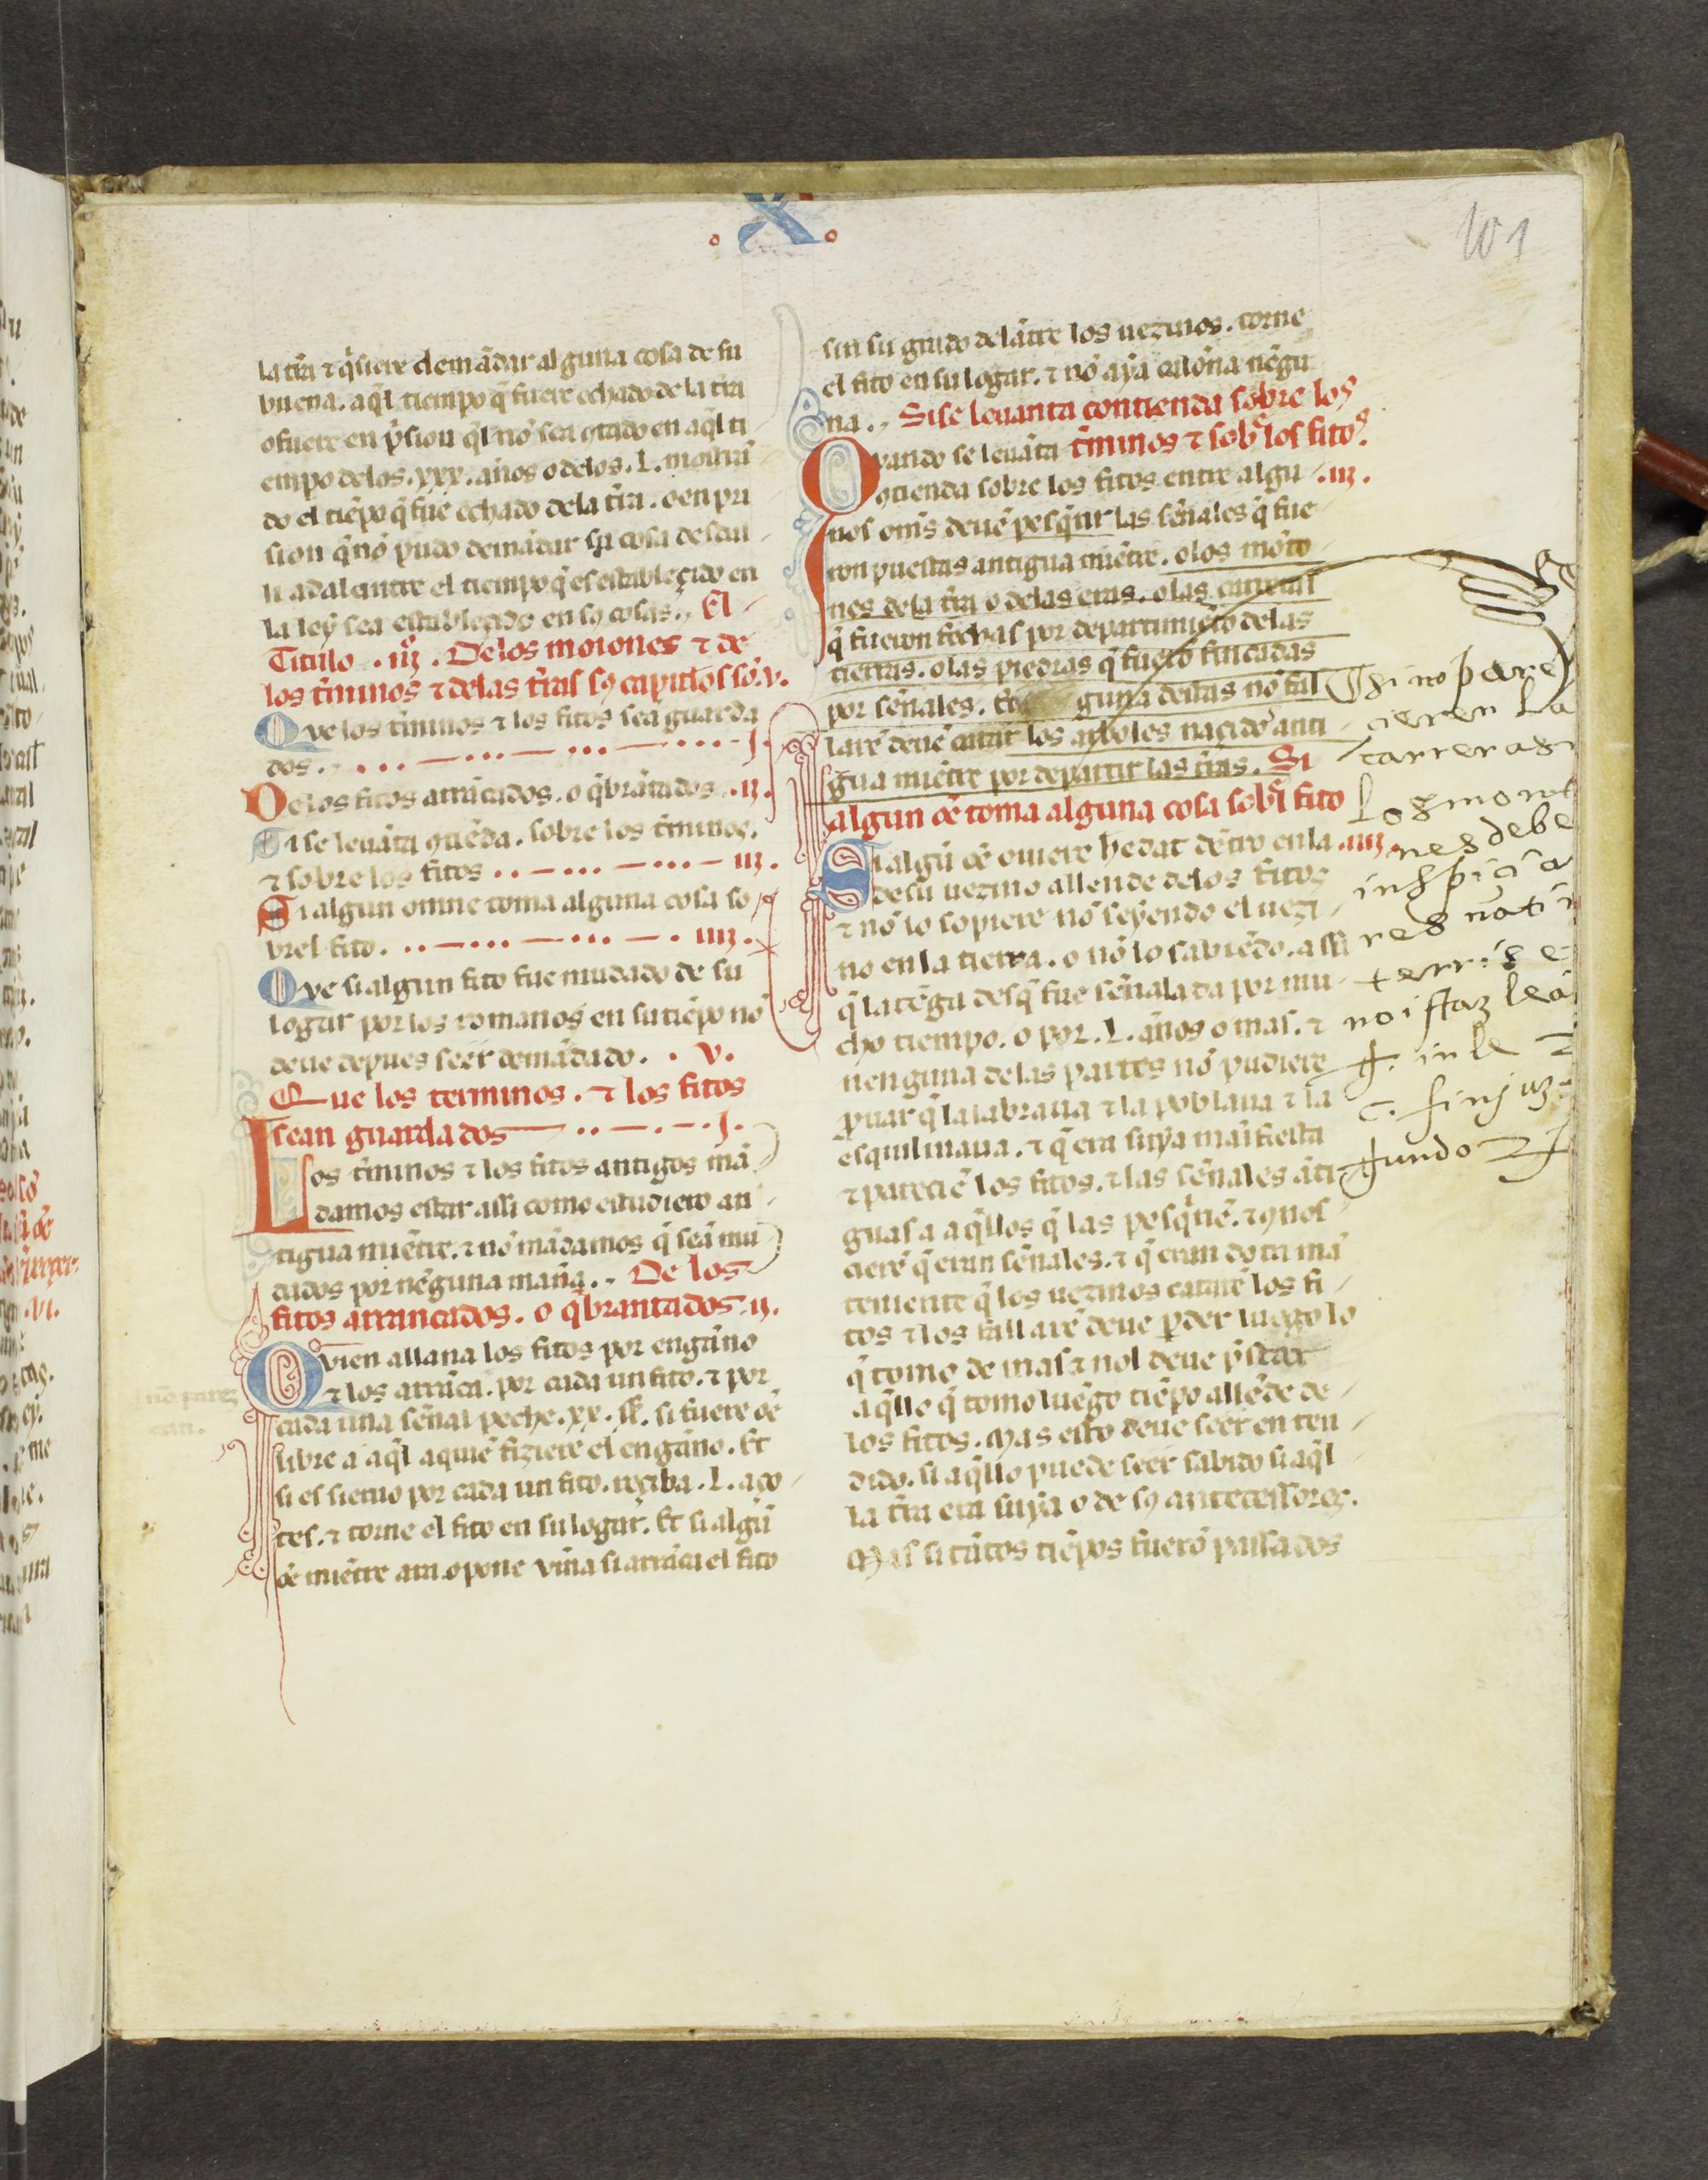 .X.
101
la tr̃a ⁊ q̃siere demãdar alguna cosa de su
buena. aq̃l tiempo q̃ fuere echado de la tr̃a
o fuere en p̃sion q̃l nõ sea gtado en aq̃l ti
empo delos .xxx. años o delos .L. mouiã
do el tiẽpo q̃ fue echado dela tr̃a. o en pri
sion q̃ nõ pudo demãdar su cosa desdal
li adelantre el tiempo q̃ es establecido en
la ley sea establecido en sꝯ cosas., El
Titulo .iij. De los moiones ⁊ de
los t̃minos ⁊ delas tr̃as sꝯ capitłos sõ .v.
Que los t̃minos ⁊ los fitos seã guarda
dos., ... — ... — ... — .... j.
De los fitos arrãcados. o q̃brãtados .ij.
Si se leuãta ꝯtẽda. sobre los t̃minos.
⁊ sobre los fitos .. — ... — ... — iij.
Si algun omne toma alguna cosa so
brel fito. .. — ... — ... — . iiij.
Que si algun fito fue mudado de su
logar por los romanos en su tiẽpo nõ
deue depues seer demãdado. . v.
Que los terminos. ⁊ los fitos
sean guardados — .. — . — . j.
Los t̃minos ⁊ los fitos antigos mã
damos estar assi como estudierõ an
tigua miẽtre. ⁊ nõ mãdamos q̃ seã mu
dados por nẽguna mañã., De los
fitos arrancados. o q̃brantados .ij.
Quien allana los fitos por engãno
⁊ los arrãca. por cada un fito. ⁊ por
cada una señal peche .xx. sł. si fuere oẽ
libre a aq̃l a quiẽ fiziere el engãno. Et
si es sieruo por cada un fito. reçiba .L. aço
tes. ⁊ torne el fito en su logar. Et si algũ
oẽ miẽtre ara. o pone viña si arrãca el fito
nõ parez
can.
sin su grado delãtre los uezinos. torne
el fito en su logar. ⁊ nõ aya calõña nẽgu
na., Si se leuanta contienda sobre los
t̃minos ⁊ sob̃ los fitos.
Quando se leuãta
ꝯtienda sobre los fitos entre algu .iij.
nos om̃s deuẽ pesq̃rir las señales q̃ fue
ron puestas antigua miẽtre. o los mõto
nes dela tr̃a o delas eras. o las carreras
q̃ fueron fechas por departimiẽto delas
tierras. o las piedras q̃ fuerõ fincadas
por señales. guna destas nõ fal
larẽ deuẽ catar los arboles naçidos anti
gua miẽtre por departir las tr̃as. Si
algun oẽ toma alguna cosa sob̃l fito
Si algũ oẽ ouiere hedat dẽtro en la .iiij.
de su uezino allende delos fitos
⁊ nõ lo sopiere nõ seyendo el uezi
no en la tierra. o nõ lo sabiẽdo. assi
q̃ la tẽga desq̃ fue señalada por mu
cho tiempo. o por .L. años o mas. ⁊
nenguna delas partes nõ pudiere
ꝓuar q̃ la labraua ⁊ la poblaua ⁊ la
esquilmaua. ⁊ q̃ era suya manifiesta
⁊ pareciẽ los fitos. ⁊ las señales ãti
guas a aq̃llos q̃ las pesq̃riẽ. ⁊ ꝯnos
cierẽ q̃ eran señales. ⁊ q̃ eran dotra mã
teniente q̃ los uezinos catarẽ los fi
tos ⁊ los fallarẽ deue p̱der luego lo
q̃ tomo de mas ⁊ nol deue p̃star
aq̃llo q̃ tomo luẽgo tiẽpo allẽde de
los fitos. Mas esto deue seer en ten
dido. si aq̃llo puede seer sabido si aq̃l
la tr̃a era suya o de sꝯ antecessores.
Mas si tãtos tiẽpos fuerõ passados
Si no pare
cieren la
carreras
los monto
nes debe
inspicia
res nati i
terris e
no ista lea
ff. in le 2
c. fini
fundo